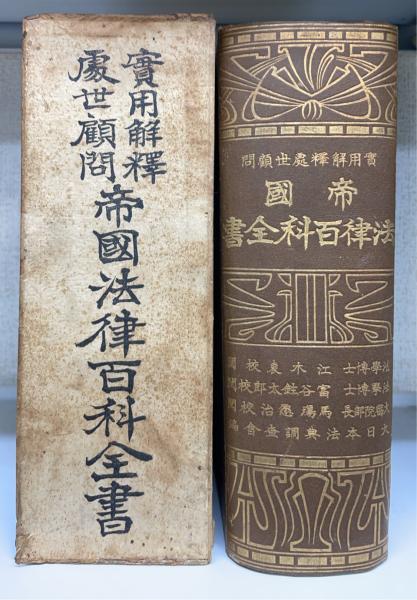 實用解釋
處世顧問
帝國法律百科全書
實用解釋處世顧問
帝國
法律百科全書
法學博士江木衷校閲
法學博士富谷鉎太郎校閲
大審院部長馬場愿治校閲
大日本法典調査會編